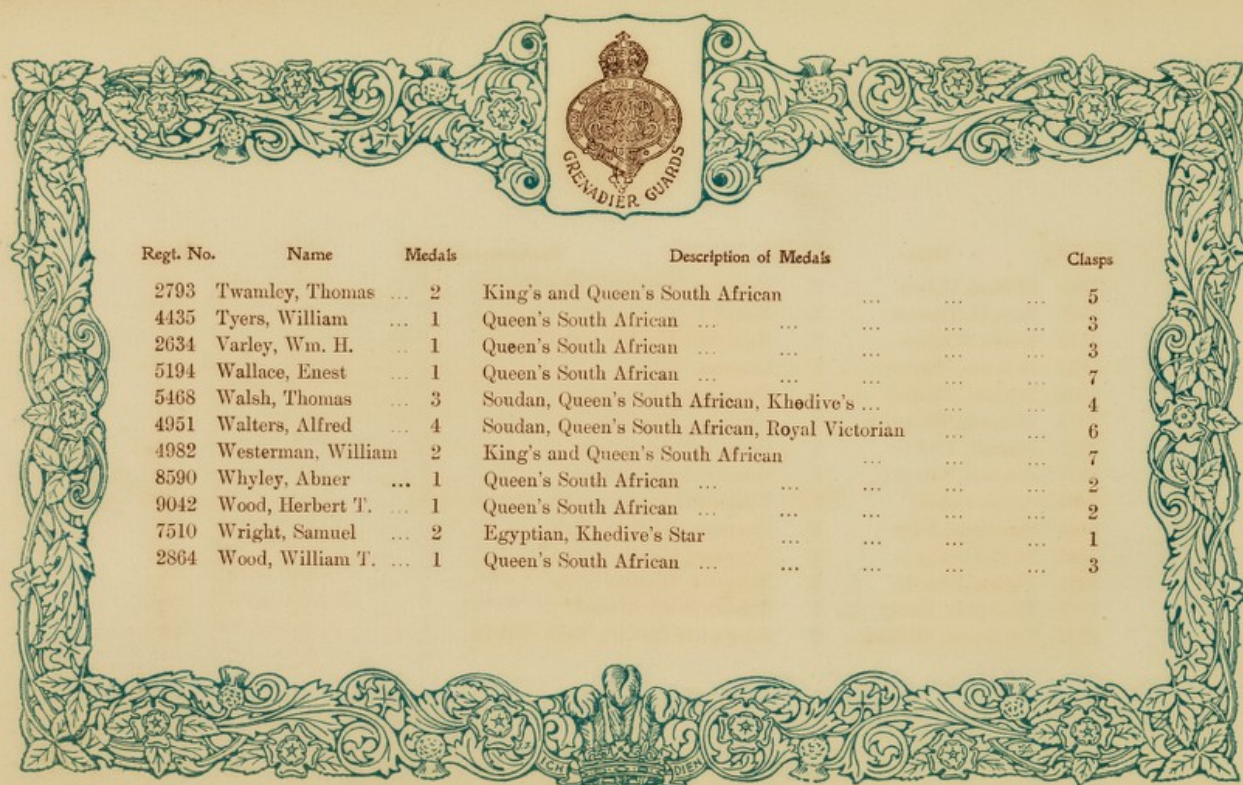 GRENADIER GUARDS
Regt. No. Name Medals Description of Medals Clasps
2793 Twamley, Thomas ... 2 King's and Queen's South African ... ... ... 5
4435 Tyers, William ... 1 Queen's South African ... ... ... ... ... 3
2634 Varley, Wm. H. .. 1 Queen's South African ... ... ... ... ... 3
5194 Wallace, Enest ... 1 Queen's South African ... ... ... ... ... 7
5468 Walsh, Thomas ... 3 Soudan, Queen's South African, Khedive's ... ... ... ... 4
4951 Walters, Alfred ... 4 Soudan, Queen's South African, Royal Victorian ... ... 6
4982 Westerman, William 2 King's and Queen's South African ... ... ... 7
8590 Whyley, Abner ... 1 Queen's South African ... ... ... ... ... 2
9042 Wood, Herbert T. ... 1 Queen's South African ... ... ... ... ... 2
7510 Wright, Samuel ... 2 Egyptian, Khedive's Star ... ... ... ... 1
2864 Wood, William T. ... 1 Queen's South African ... ... ... ... ... 3
ICH DIEN